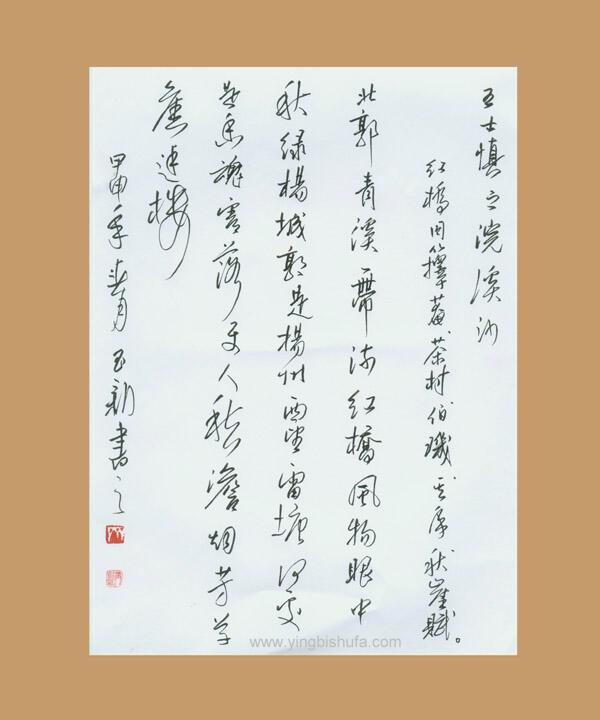 王士慎之浣溪沙
红橋同籜菴、茶村、伯璣、其年秋崖賦。
北郭青溪一帶流红橋风物眼中
秋绿楊城郭是楊州西望雷塘何處
是香魂零落使人愁澹烟芳草
舊迷楼
甲申年春月玉新書之
www.yingbishufa.com